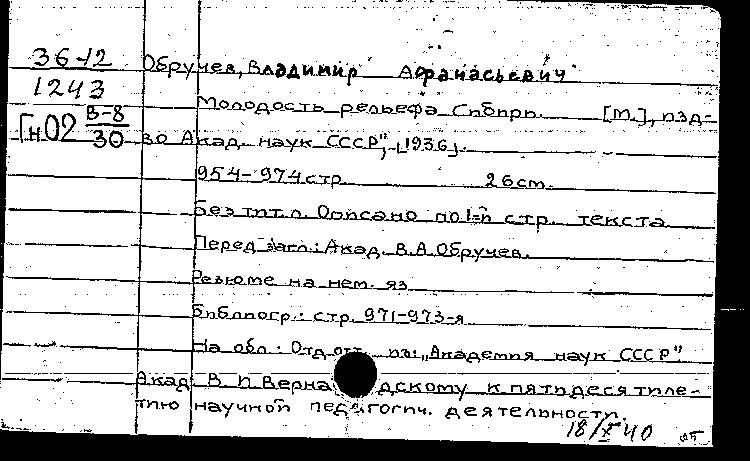 36-12 Обручев, Владимир Афанасьевич
1243
Молодость рельефа Сибири. [М.], изд-
Гн02 В-8/30 во Акад. наук СССР", [1936].
954-974 стр. 26 cm.
Без тит. л. Описано по 1-й стр. текста
Перед загл.: Акад. В.А. Обручев.
Резюме на нем. яз
Библиогр.: стр. 971-973-я
На обл.: Отд. отт. из: „Академия наук СССР"
Акад. В И Верна дскому к пятидесятиле-
тию научной педагогич. деятельности.
18/X 40